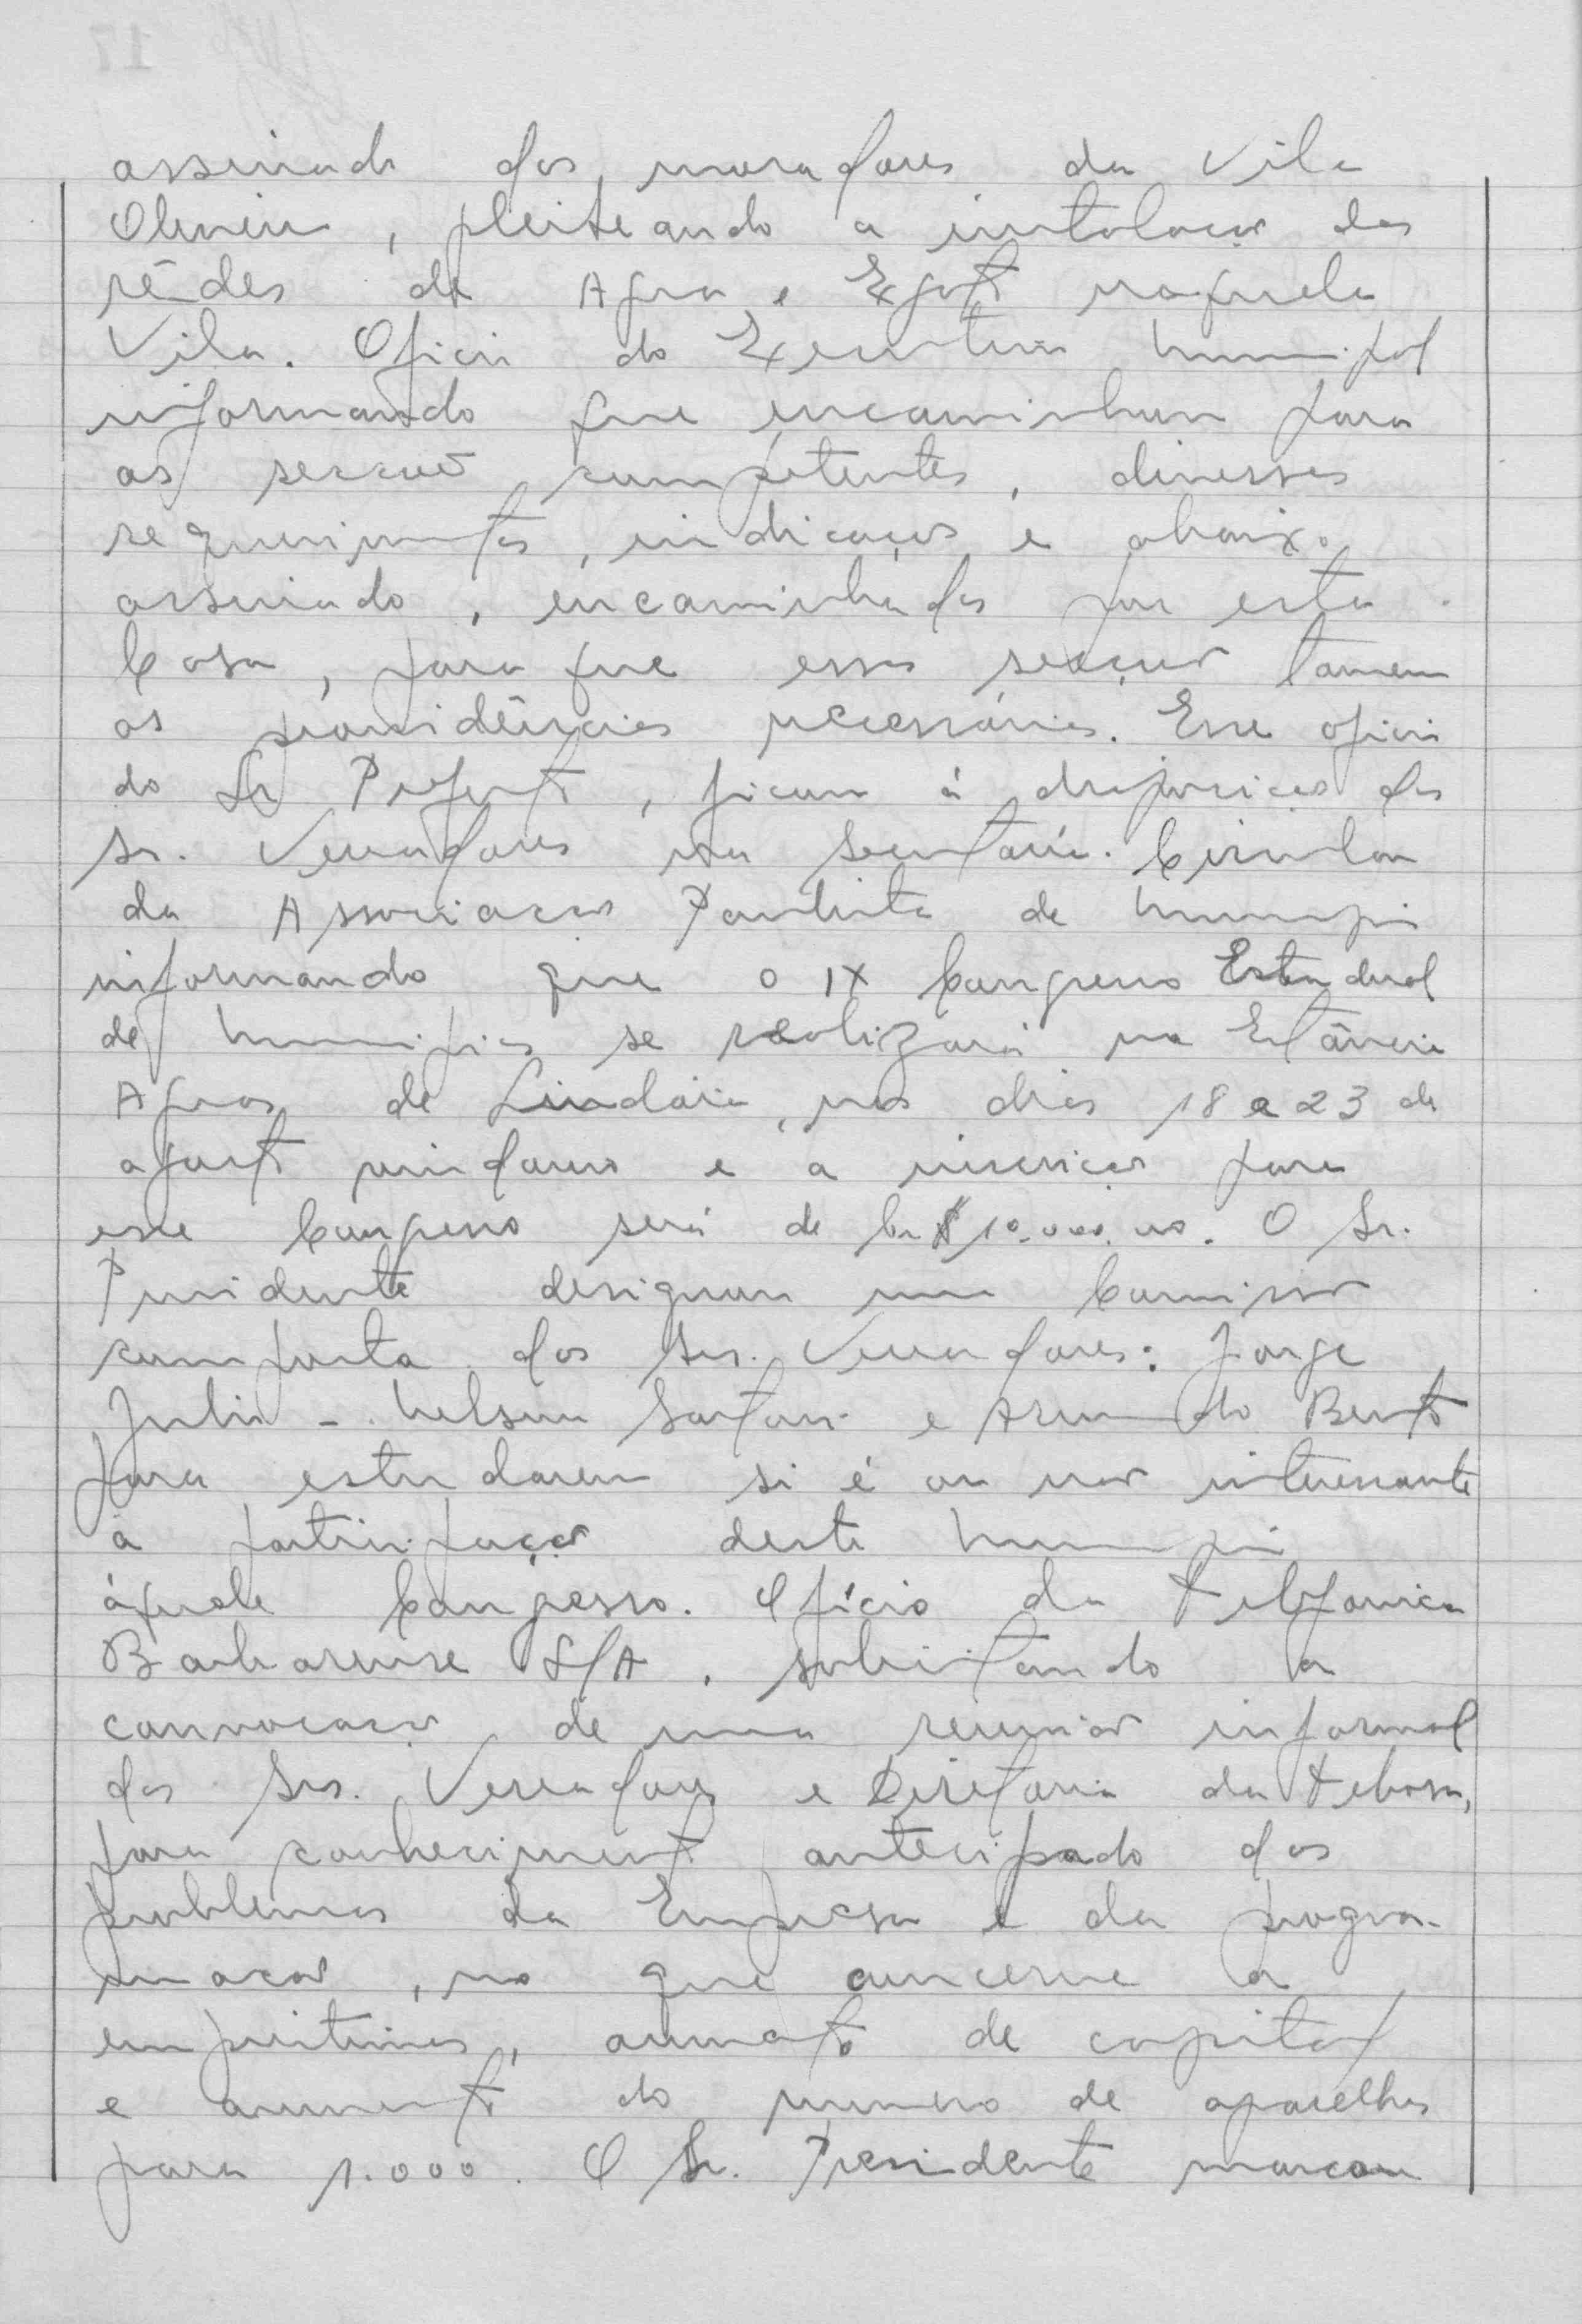 assinado dos moradores da Vila
Oliveira, pleiteando a instalação das
rêdes de Agua e Exgoto naquela
Vila. Oficio do Executivo Municipal
informando que encaminhou para
as secções competentes, diversos
requerimentos, indicações e abaixo
assinado, encaminhados por esta
Casa, para que essas secções tomem
as providências necessárias. Esse oficio
do Sr Prefeito, ficou à disposição dos
Sr. Vereadores na Secretaria. Circular
da Associação Paulista de Municipio
informando que o IX Congresso Estadual
de Municipios se realizará na Estância
Aguas de Lindóia, nos dias 18 a 23 de
agosto vindouro e a inscrição para
esse Congresso será de Cr$ 10.000,00. O Sr.
Presidente designou uma Comissão
composta dos Srs. Vereadores: Jorge
Julio - Nelson Sartori e Armando Bento
para estudarem si é ou não interessante
a participação deste Municipio
àquele Congresso. Ofício da Telefonica
Barbarense S/A, solicitando a
convocação de uma reunião informal
dos Srs. Vereadores e Diretoria da Tebasa,
para conhecimento antecipado dos
problemas da Empresa e da progra-
mação, no que concerne a
empréstimos, aumento de capital
e aumento do numero de aparelhos
para 1.000. O Sr. Presidente marcou